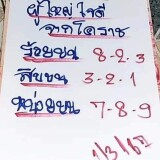 ผู้ใหญ่ใจดี
จากโคราช
ร้อยบน 8-2-3
สิบบน 3-2-1
หน่วยบน 7-8-9
1/3/67